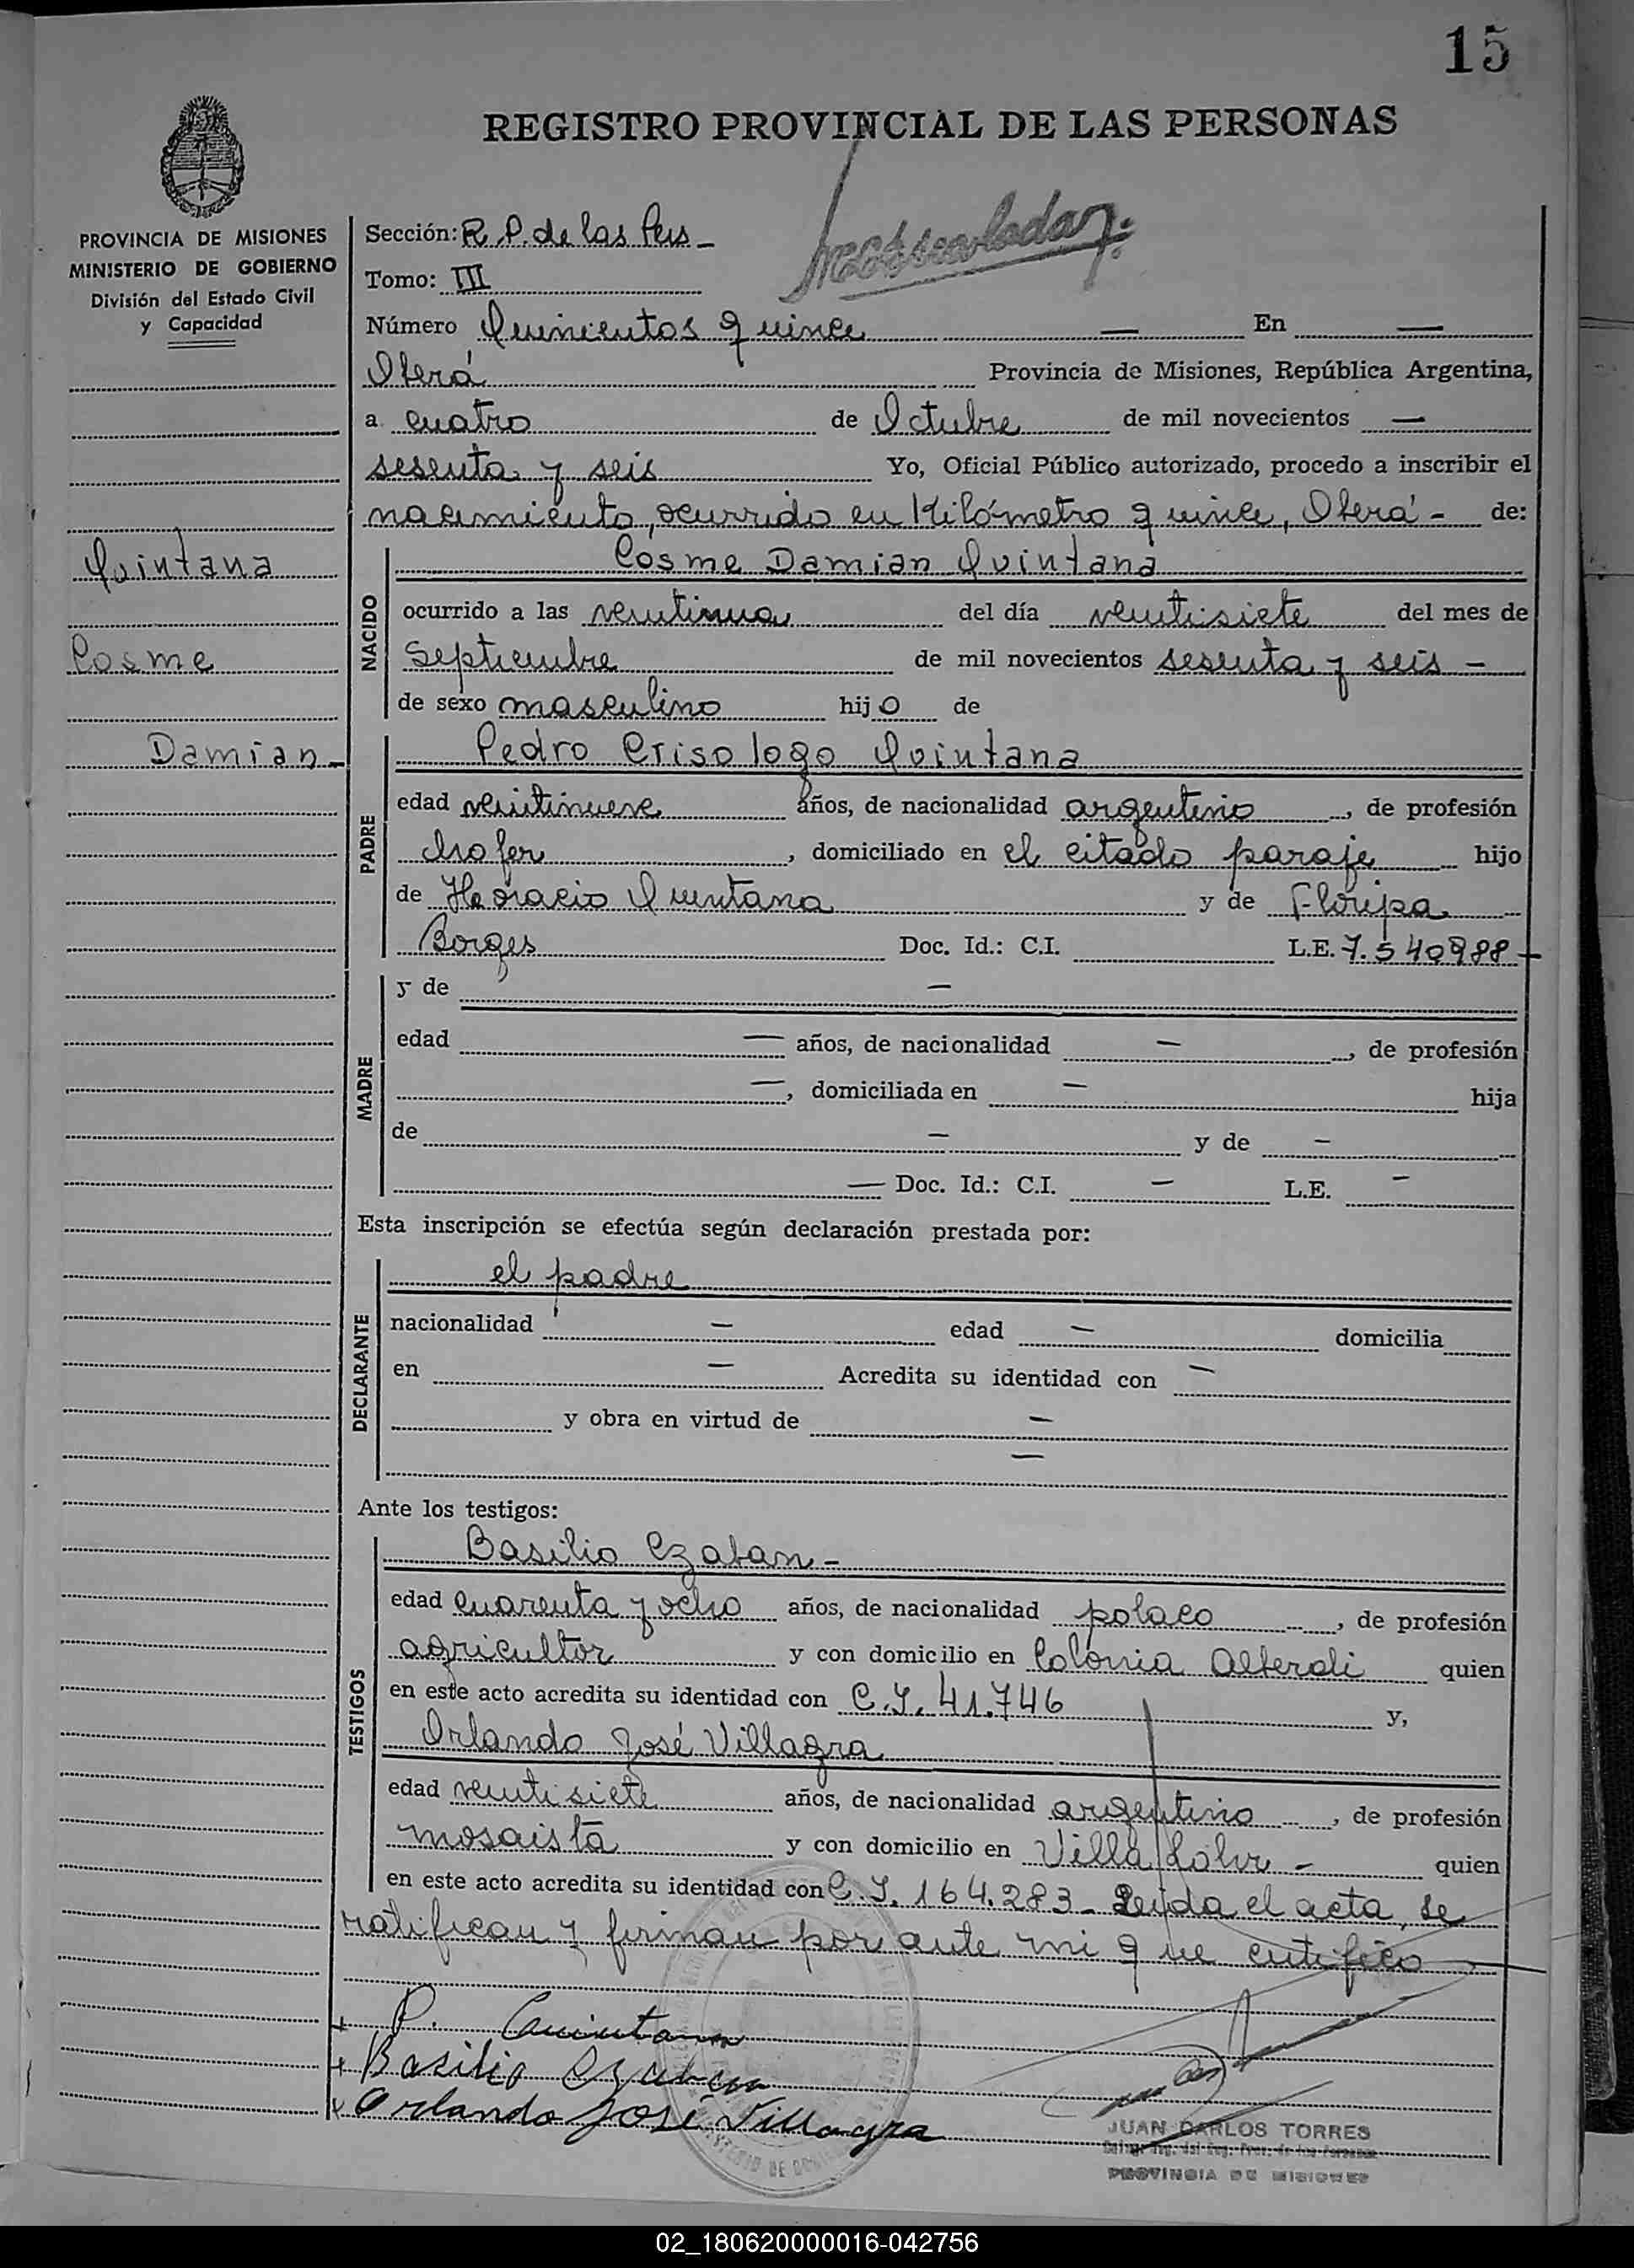 15
REGISTRO PROVINCIAL DE LAS PERSONAS
PROVINCIA DE MISIONES
MINISTERIO DE GOBIERNO
División del Estado Civil
y Capacidad
Quintana
Cosme
Damian-
Sección: R.P. de las Pers -
Tomo: III
Número Quinientos quince — En —
Oberá Provincia de Misiones, República Argentina,
a cuatro de Octubre de mil novecientos —
sesenta y seis Yo, Oficial Público autorizado, procedo a inscribir el
nacimiento, ocurrido en Kilómetro quince, Oberá - de:
NACIDO
Cosme Damian Quintana
ocurrido a las del día veintisiete del mes de
Septiembre de mil novecientos sesenta y seis -
de sexo masculino hijo de
PADRE
Pedro Crisologo Quintana
edad veintinueve años, de nacionalidad argentino, de profesión
chofer, domiciliado en el citado paraje hijo
de Horacio Quintana y de Floripa
Borges Doc. Id.: C.I. L.E. 7.540988-
MADRE
y de —
edad — años, de nacionalidad —, de profesión
—, domiciliada en — hija
de — y de —
— Doc. Id.: C.I. — L.E. —
Esta inscripción se efectúa según declaración prestada por:
DECLARANTE
el padre
nacionalidad — edad — domicilia
en — Acredita su identidad con —
y obra en virtud de —
—
Ante los testigos:
TESTIGOS
Basilio Czaban -
edad cuarenta y ocho años, de nacionalidad polaco, de profesión
agricultor y con domicilio en Colonia Alberdi quien
en este acto acredita su identidad con C.I. 41.746 y,
Orlando José Villagra
edad veintisiete años, de nacionalidad argentino, de profesión
mosaista y con domicilio en Villa - quien
en este acto acredita su identidad con C.I. 164.283 - Leida el acta, se
ratifican y firman por ante mi que certifico
P. Quintana
Basilio Czaban
Orlando José Villagra
JUAN CARLOS TORRES
PROVINCIA DE MISIONES
02_180620000016-042756